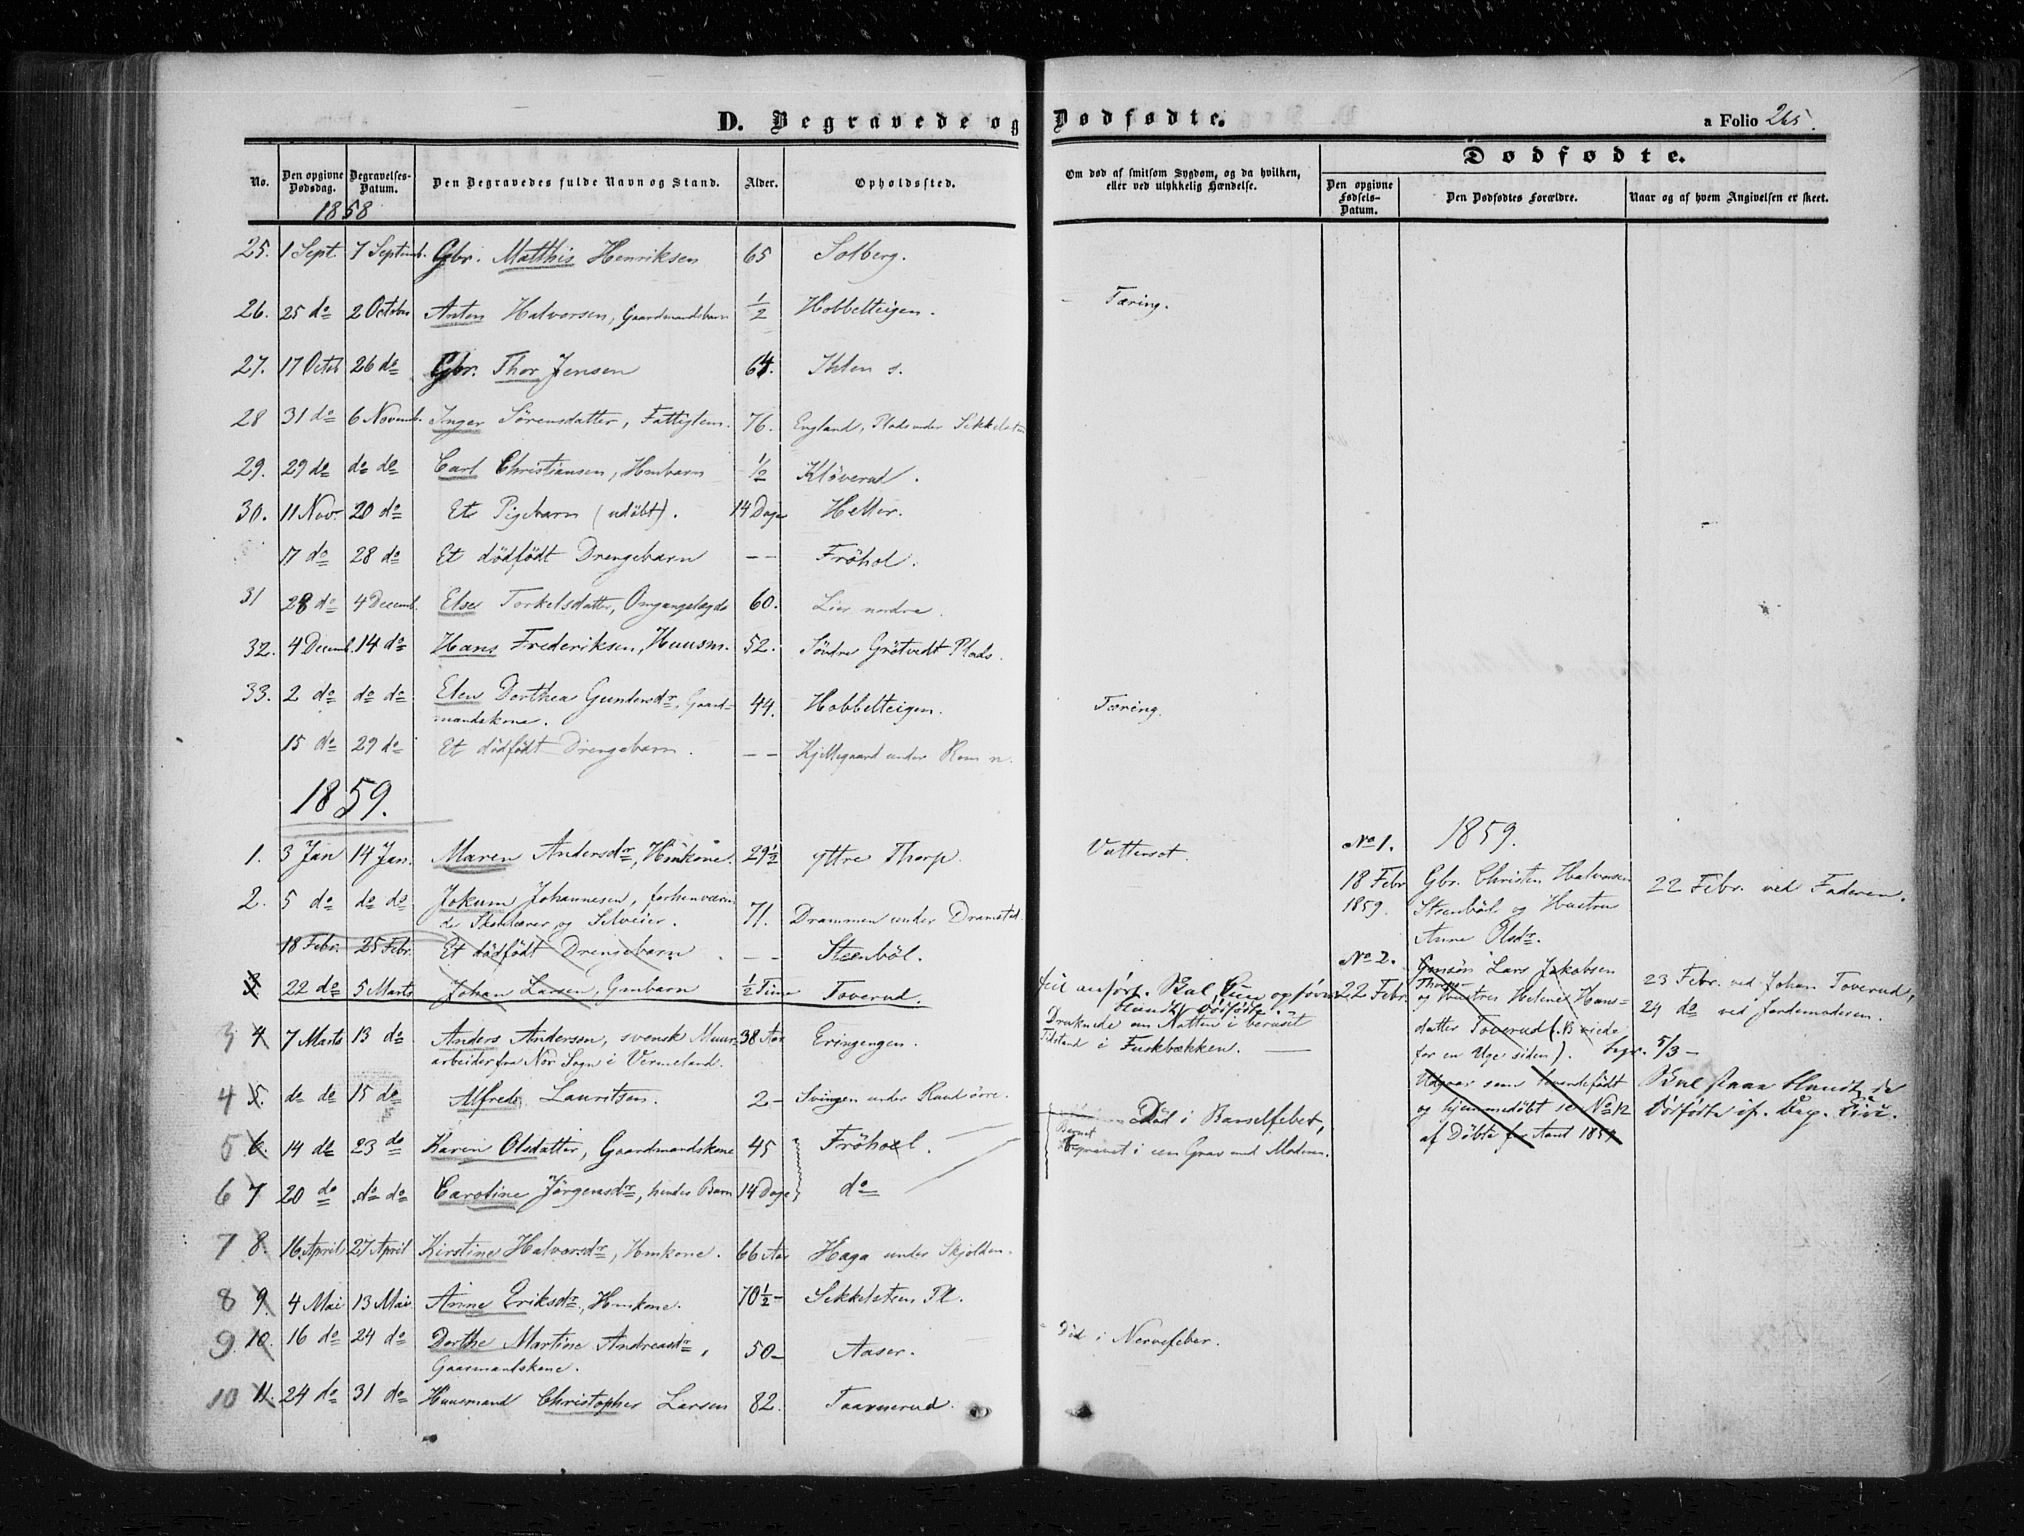 D. Begravede og Dødfødte.
a Folio 265.
No. Den opgivne Dødsdag. Begravelses-Datum. Den Begravedes fulde Navn og Stand. Alder. Opholdssted.
Om død af smitsom Sygdom, og da hvilken, eller ved ulykkelig Hændelse.
Dødfødte.
Den opgivne Fødsels-Datum. Den Dødfødtes Forældre. Naar og af hvem Angivelsen er skeet.
1858
25. 1 Sept. 7 Septemb. Gbr. Matthis Henriksen 65 Solberg.
26. 25 do 2 October Anton Halvorsen, Gaardmandsbarn 1/2 Hobbelteigen. Tæring.
27. 17 Octob 26 do Gbr. Thor Jensen 64. Ihlen s.
28 31 do 6 Novemb. Inger Sørensdatter, Fattiglem. 76. England, Plads under Sekkelsten
29. 29 do do do Carl Christiansen, Hmbarn 1/2 Kløverud.
30. 11 Nov. 20 do Et Pigebarn (udøbt). 14 Dage Heller.
17 do 28 do Et dødfødt Drengebarn -- Frøhol.
31 28 do 4 Decemb. Else Torkelsdatter, Omgangslægd 60. Lier nordre.
32. 4 Decemb. 14 do Hans Frederiksen, Huusm. 52. Søndre Grøtvedt Plads.
33. 2 do do do Elen Dorthea Gundersdr, Gaard-
mandskone. 44. Hobbelteigen. Tæring.
15 do 29 do Et dødfødt Drengebarn. -- Kjellegaard under Rom n.
1859.
1. 3 Jan 14 Jan. Maren Andersdr, Hmkone. 29 1/2 Yttre Thorp. Vattersot.
2. 5 do do do Jokum Johannesen, forhenværen-
de Skolelærer og Selveier. 71. Drammen under Dramstad
18 Febr. 25 Febr. Et dødfødt Drengebarn. -- Steenbøl.
3 22 do 5 Marts Johan Larsen, Gmbarn 1/2 Time Toverud.
3 4 7 Marts 13 do Anders Andersen, svensk Muur-
arbeider fra Nor Sogn i Vermeland. 38 Aar Eringengen.
Druknede om Natten i beruset
Tilstand i Fuskbækken.
4 5. do do 15 do Alfred Lauritsen. 2 - Svingen under Raudøøre.
5 6. 14 do 23 do Karen Olsdatter, Gaardmandskone 45 Frøhoel. Død i Barselfeber,
Barnet
begravet i een Grav med Moderen.
6 7 20 do do do Caroline Jørgensdr, hendes Barn 14 Dage do
7 8. 16 April 27 April Kirstine Halvorsdr, Hmkone. 66 Aar Haga under Skjolden.
8 9. 4 Mai 13 Mai Anne Eriksdr, Hmkone. 70 1/2 - Sekkelsten Pl.
9. 10. 16 do 24 do Dorthe Martine Andreasdr,
Gaarmandskone. 50 - Aaser. Død i Nervefeber.
10 11. 24 do 31 do Huusmand Christopher Larsen 82. Taarnerud.
1859.
No 1.
18 Febr 1859. Gbr. Christen Halvorsen
Steenbøl og Hustru
Anne Olsdr.
22 Febr. ved Faderen.
No 2.
22 Febr. Gmsøn Lars Jakobsen
og Hustru Helene Hans-
datter Toverud
for en Uge siden).
23 Febr. ved Johan Toverud,
24 do ved Jordemoderen.
5/3 -
Udgaar som levendefødt
og hjemmedøbt se No 12
af Døbte for Aaret 1859